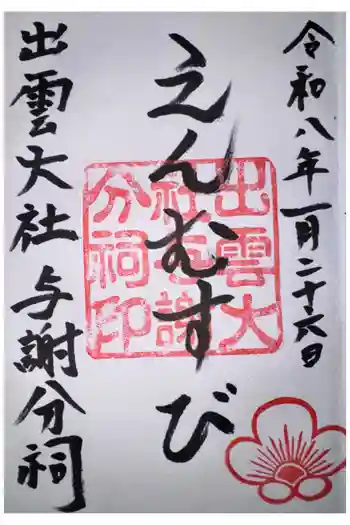 令和八年一月二十六日
えんむすび
出雲大社与謝分祠
出雲大
社与謝
分祠印